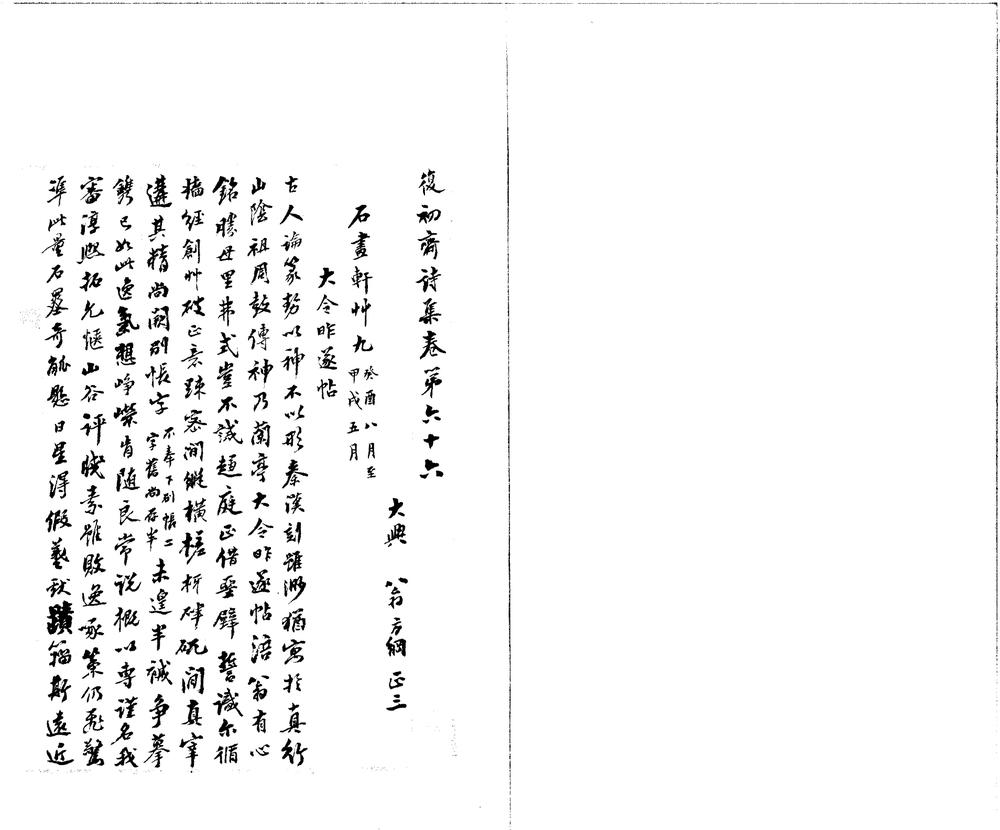 復初齋詩集卷第六十六
大興 翁方綱 正三
石畫軒艸九 癸酉八月至甲戌五月
大令昨遂帖
古人論篆勢以神不以形秦漢刻雖渺猶寓於真行
山陰祖周鼓傳神乃蘭亭大令昨遂帖涪翁有心
銘勝母里弗式豈不誠趨庭正借堊壁誓識尓循
牆經創艸破正意疎密間縱横搓枒砰砈間真宰
遘其精尚闕別悵字 不奉下別悵二字舊尚存半 未遑半誠争摹
鐫已如此逸氣想崢嶸肯随良常説概以専謹名我
審淳熙拓允愜山谷評賤素雖敗逸啄策仍飛驚
準此量石墨奇觚懸日星淂假藝狀蹟籀斯遠近